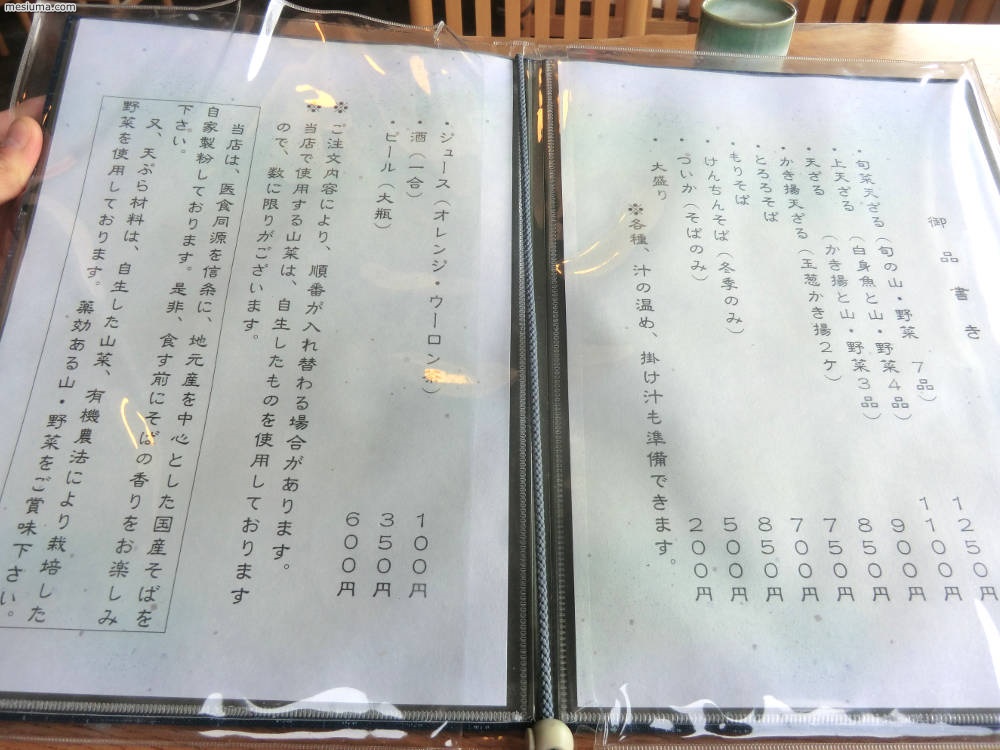 mesiuma.com
御品書き
・旬菜天ざる（旬の山・野菜　7品） 1250円
・上天ざる（白身魚と山・野菜4品） 1100円
・天ざる（かき揚と山・野菜3品） 900円
・かき揚天ざる（玉葱かき揚2ケ） 850円
・とろろそば 750円
・もりそば 700円
・けんちんそば（冬季のみ） 850円
・づいか（そばのみ） 500円
大盛り 200円
※各種、汁の温め、掛け汁も準備できます。
・ジュース（オレンジ・ウーロン茶） 100円
・酒（一合） 350円
・ビール（大瓶） 600円
※ご注文内容により、順番が入れ替わる場合があります。
※当店で使用する山菜は、自生したものを使用しております
ので、数に限りがございます。
当店は、医食同源を信条に、地元産を中心とした国産そばを
自家製粉しております。是非、食す前にそばの香りをお楽しみ
下さい。
又、天ぷら材料は、自生した山菜、有機農法により栽培した
野菜を使用しております。薬効ある山・野菜をご賞味下さい。